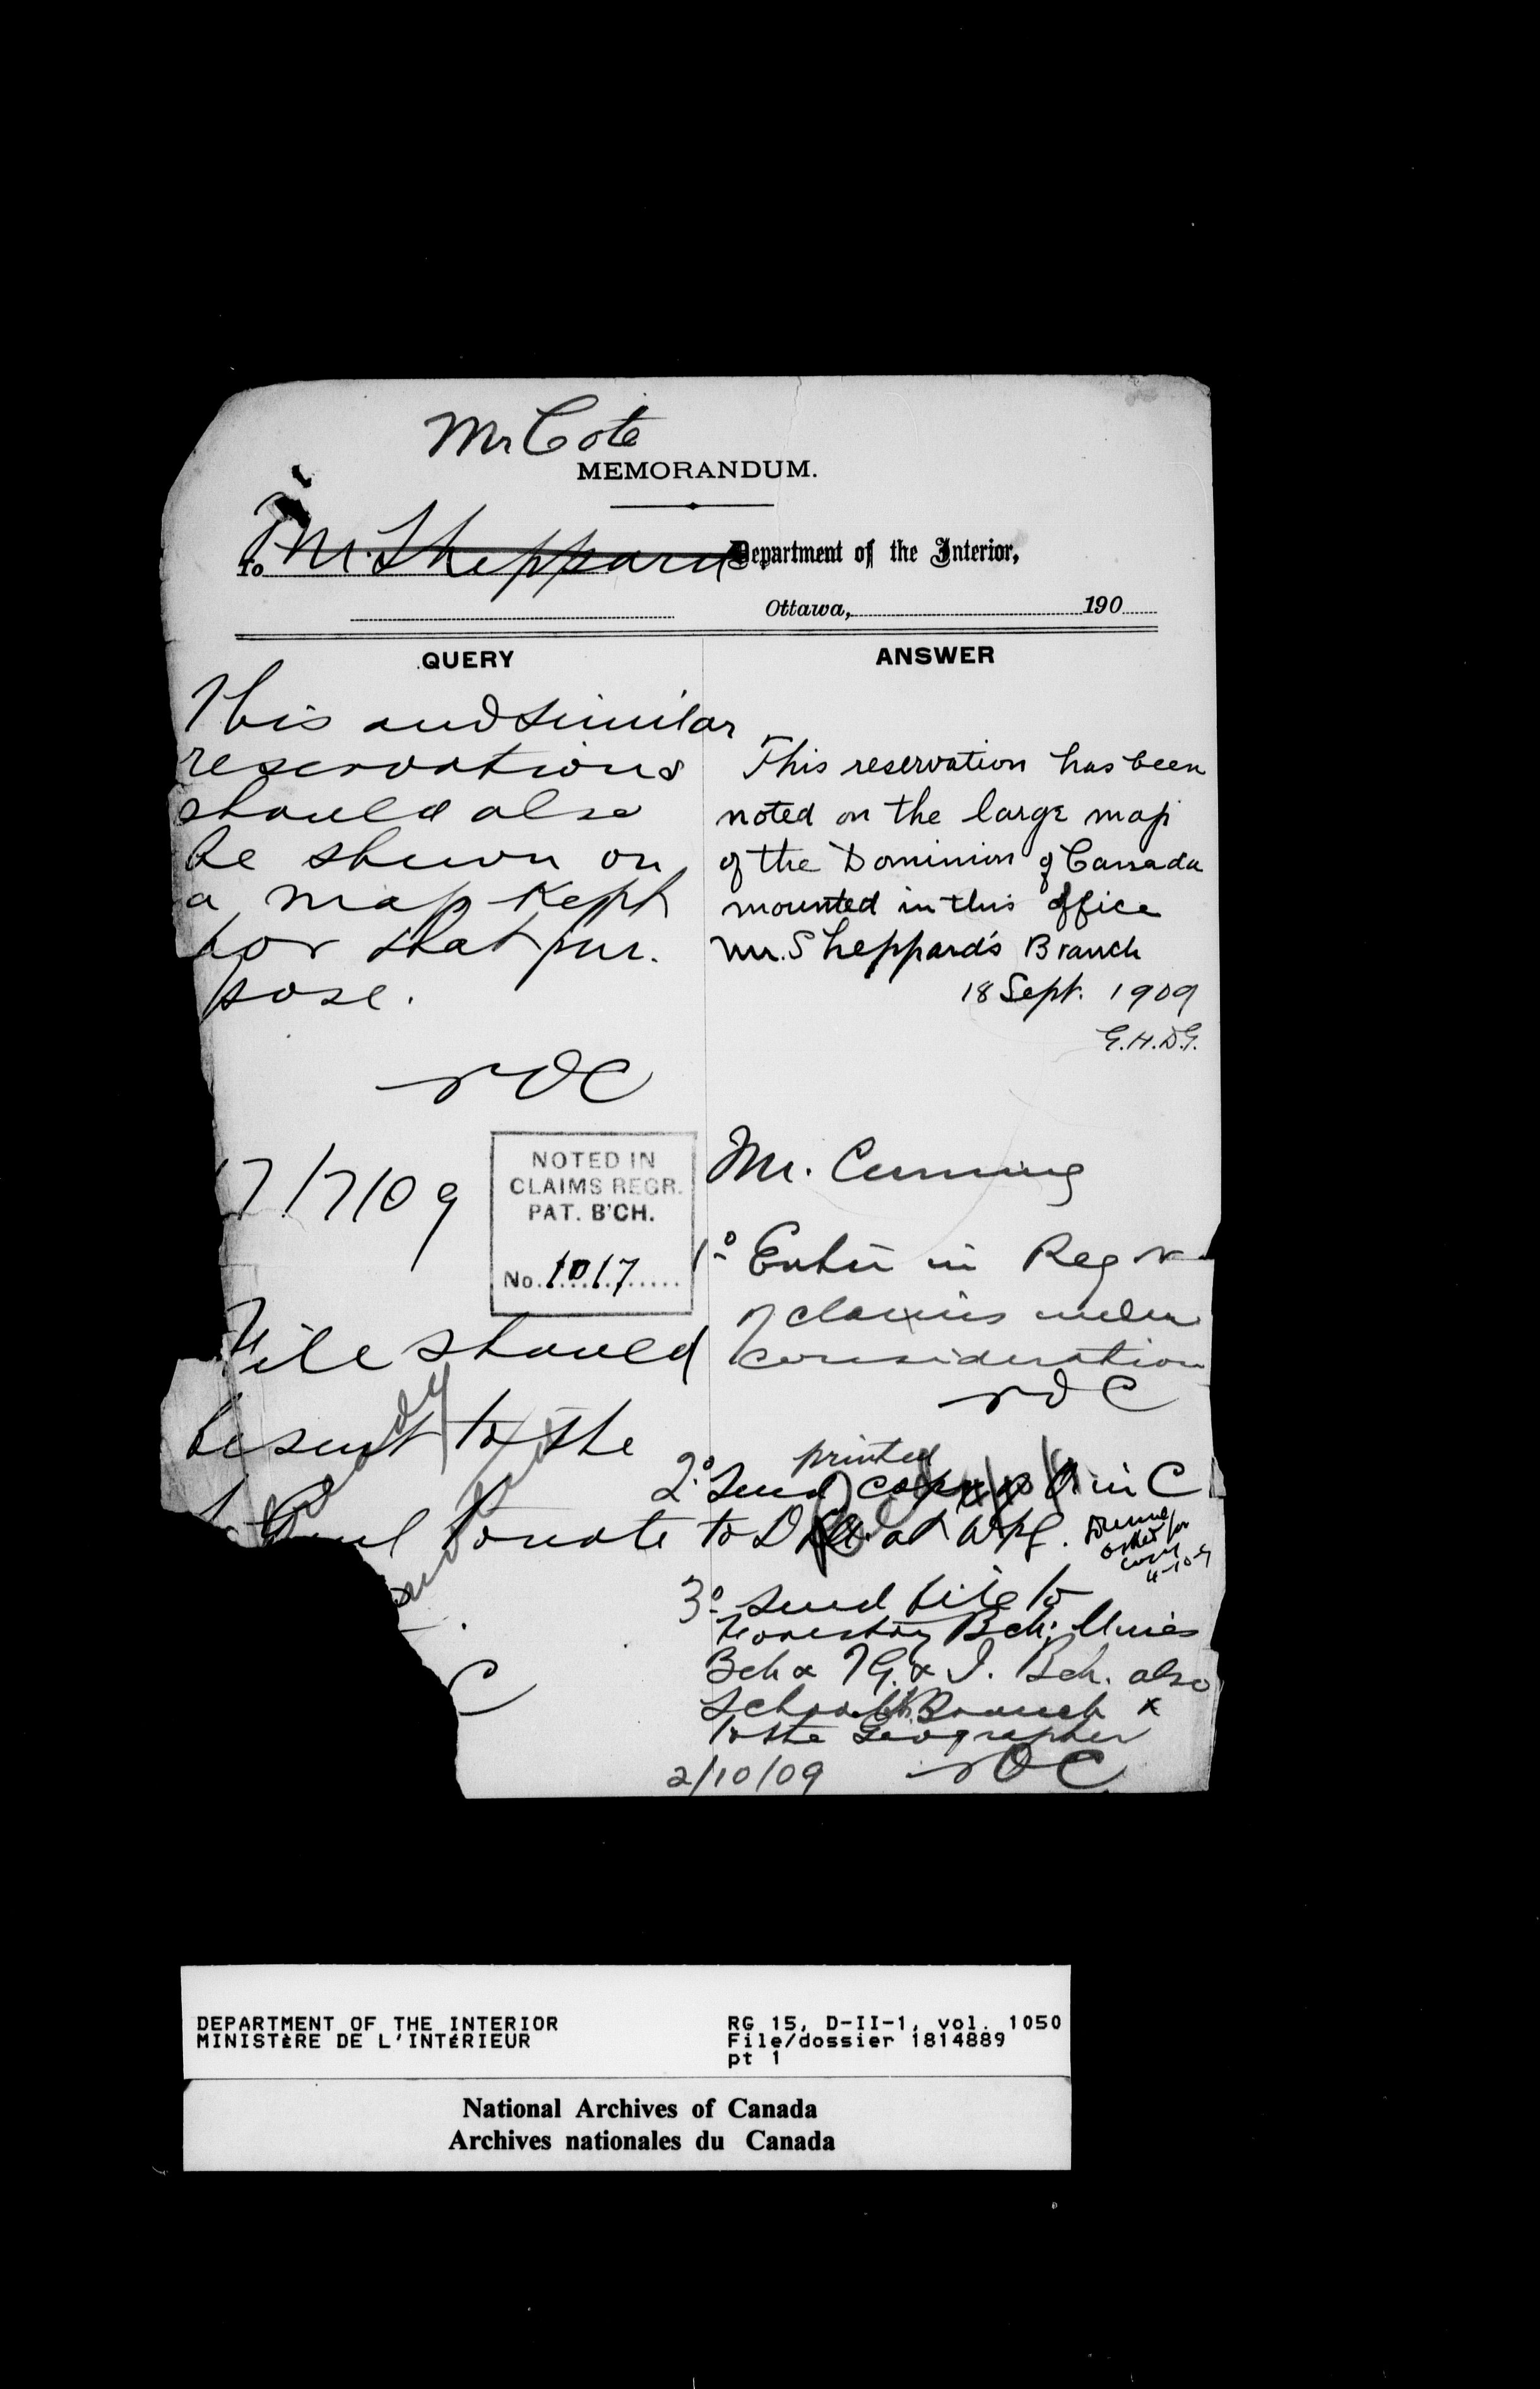 Mr Cote
MEMORANDUM.
To Mr. Sheppard
Department of the Interior,
Ottawa, 190
QUERY
This and similar
reservations
should also
be shewn on
a map kept
for that pur-
pose.
NOC
17/7/09
NOTED IN
CLAIMS REGR.
PAT. B'CH.
No. 1017
File should
be sent to the
to note
C
ANSWER
This reservation has been
noted on the large map
of the Dominion of Canada
mounted in this office
Mr. Sheppard's Branch
18 Sept. 1909
G.H.D.G.
Mr. Cumming
1º Enter in Regr
of claims under
consideration
NOC
printed
2º Send copy O in C
to at Wpg.
asked for
copy
3º Send file to
Forestry Bch; Mines
Bch & T.G. & I. Bch. also
School Branch &
to the Geographer
2/10/09 NOC
DEPARTMENT OF THE INTERIOR
MINISTÈRE DE L'INTÉRIEUR
RG 15, D-II-1, vol. 1050
File/dossier 1814889
pt 1
National Archives of Canada
Archives nationales du Canada